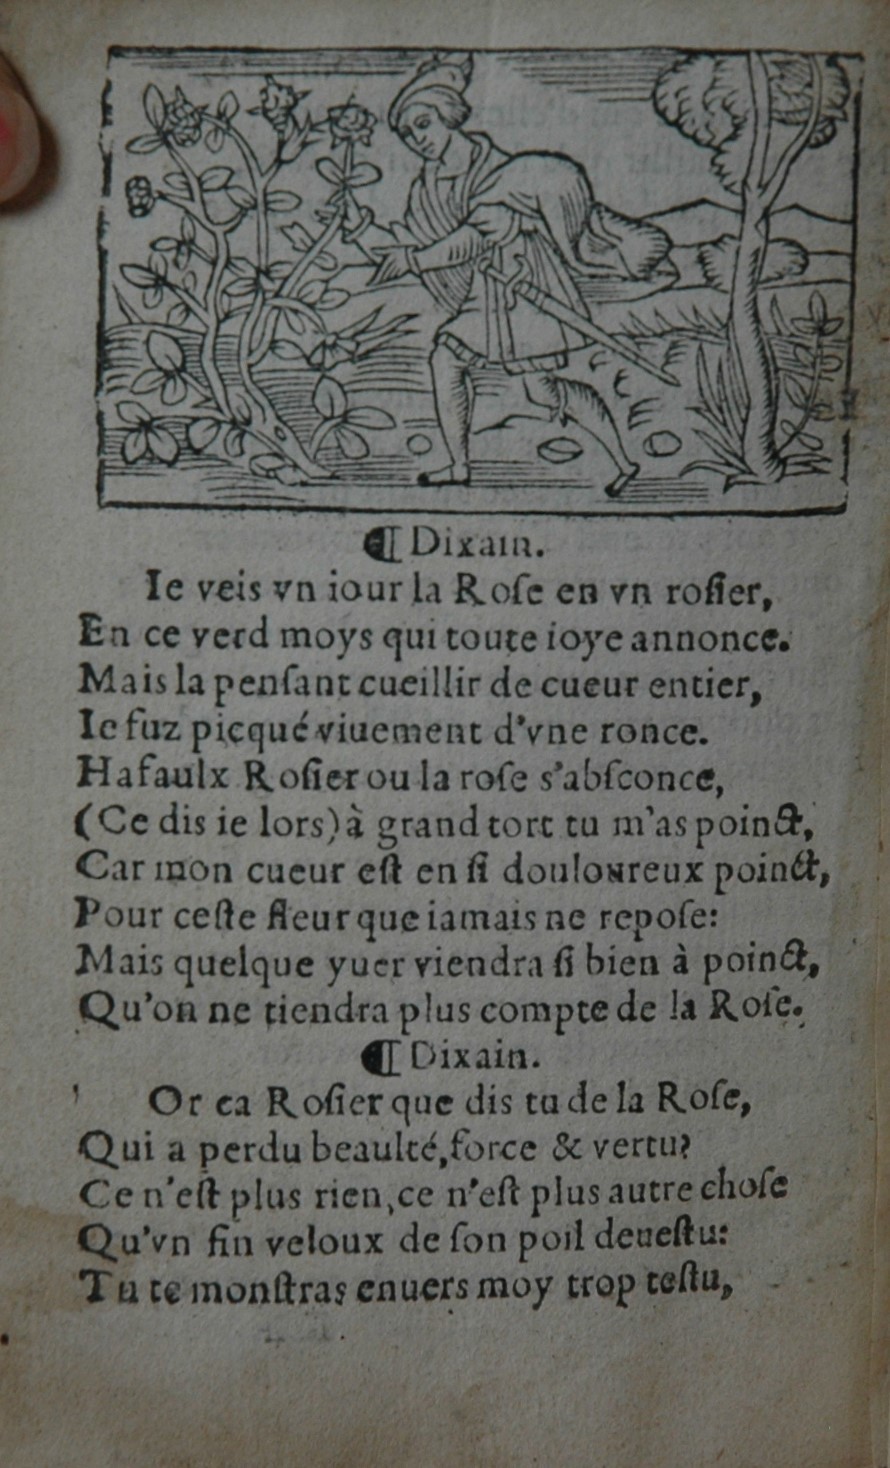 ¶ Dixain.
Ie veis vn iour la Roſe en vn roſier,
En ce verd moys qui toute ioye annonce.
Mais la penſant cueillir de cueur entier,
Ie fuz picqué viuement d'vne ronce.
Ha faulx Roſier ou la roſe s'abſconce,
(Ce dis ie lors) à grand tort tu m'as poinct,
Car mon cueur eſt en ſi douloureux poinct,
Pour ceſte fleur que iamais ne repoſe:
Mais quelque yuer viendra ſi bien à poinct,
Qu'on ne tiendra plus compte de la Roſe.
¶ Dixain.
Or ca Roſier que dis tu de la Roſe,
Qui a perdu beaulté, force & vertu?
Ce n'eſt plus rien, ce n'eſt plus autre choſe
Qu'vn fin veloux de ſon poil deueſtu:
Tu te monſtras enuers moy trop teſtu,